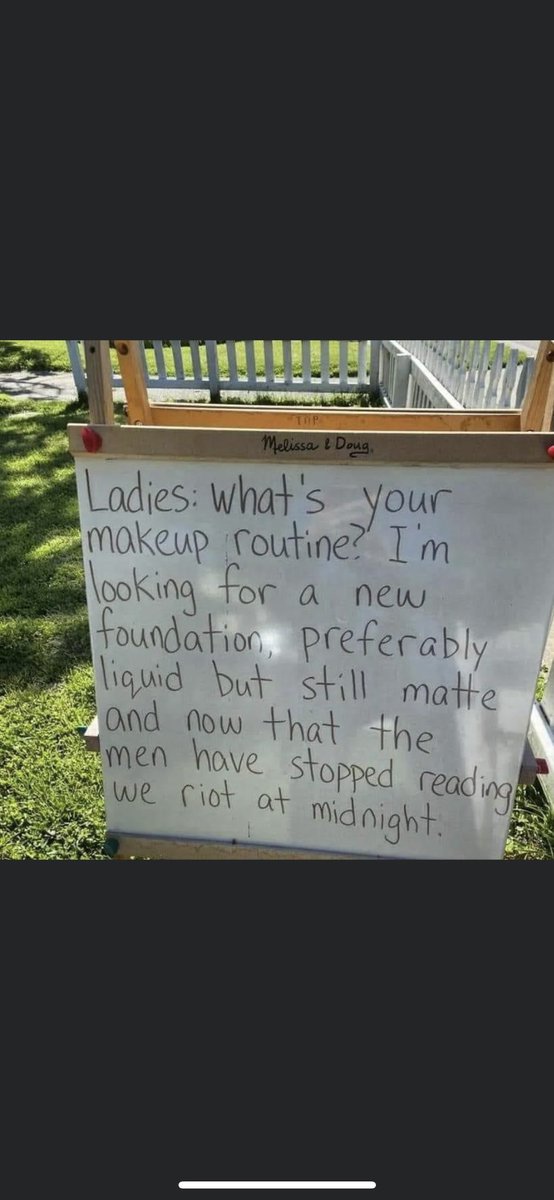 TOP
Melissa & Doug
Ladies: What's your
makeup routine? I'm
looking for a new
foundation, preferably
liquid but still matte
and now that the
men have stopped reading
we riot at midnight.